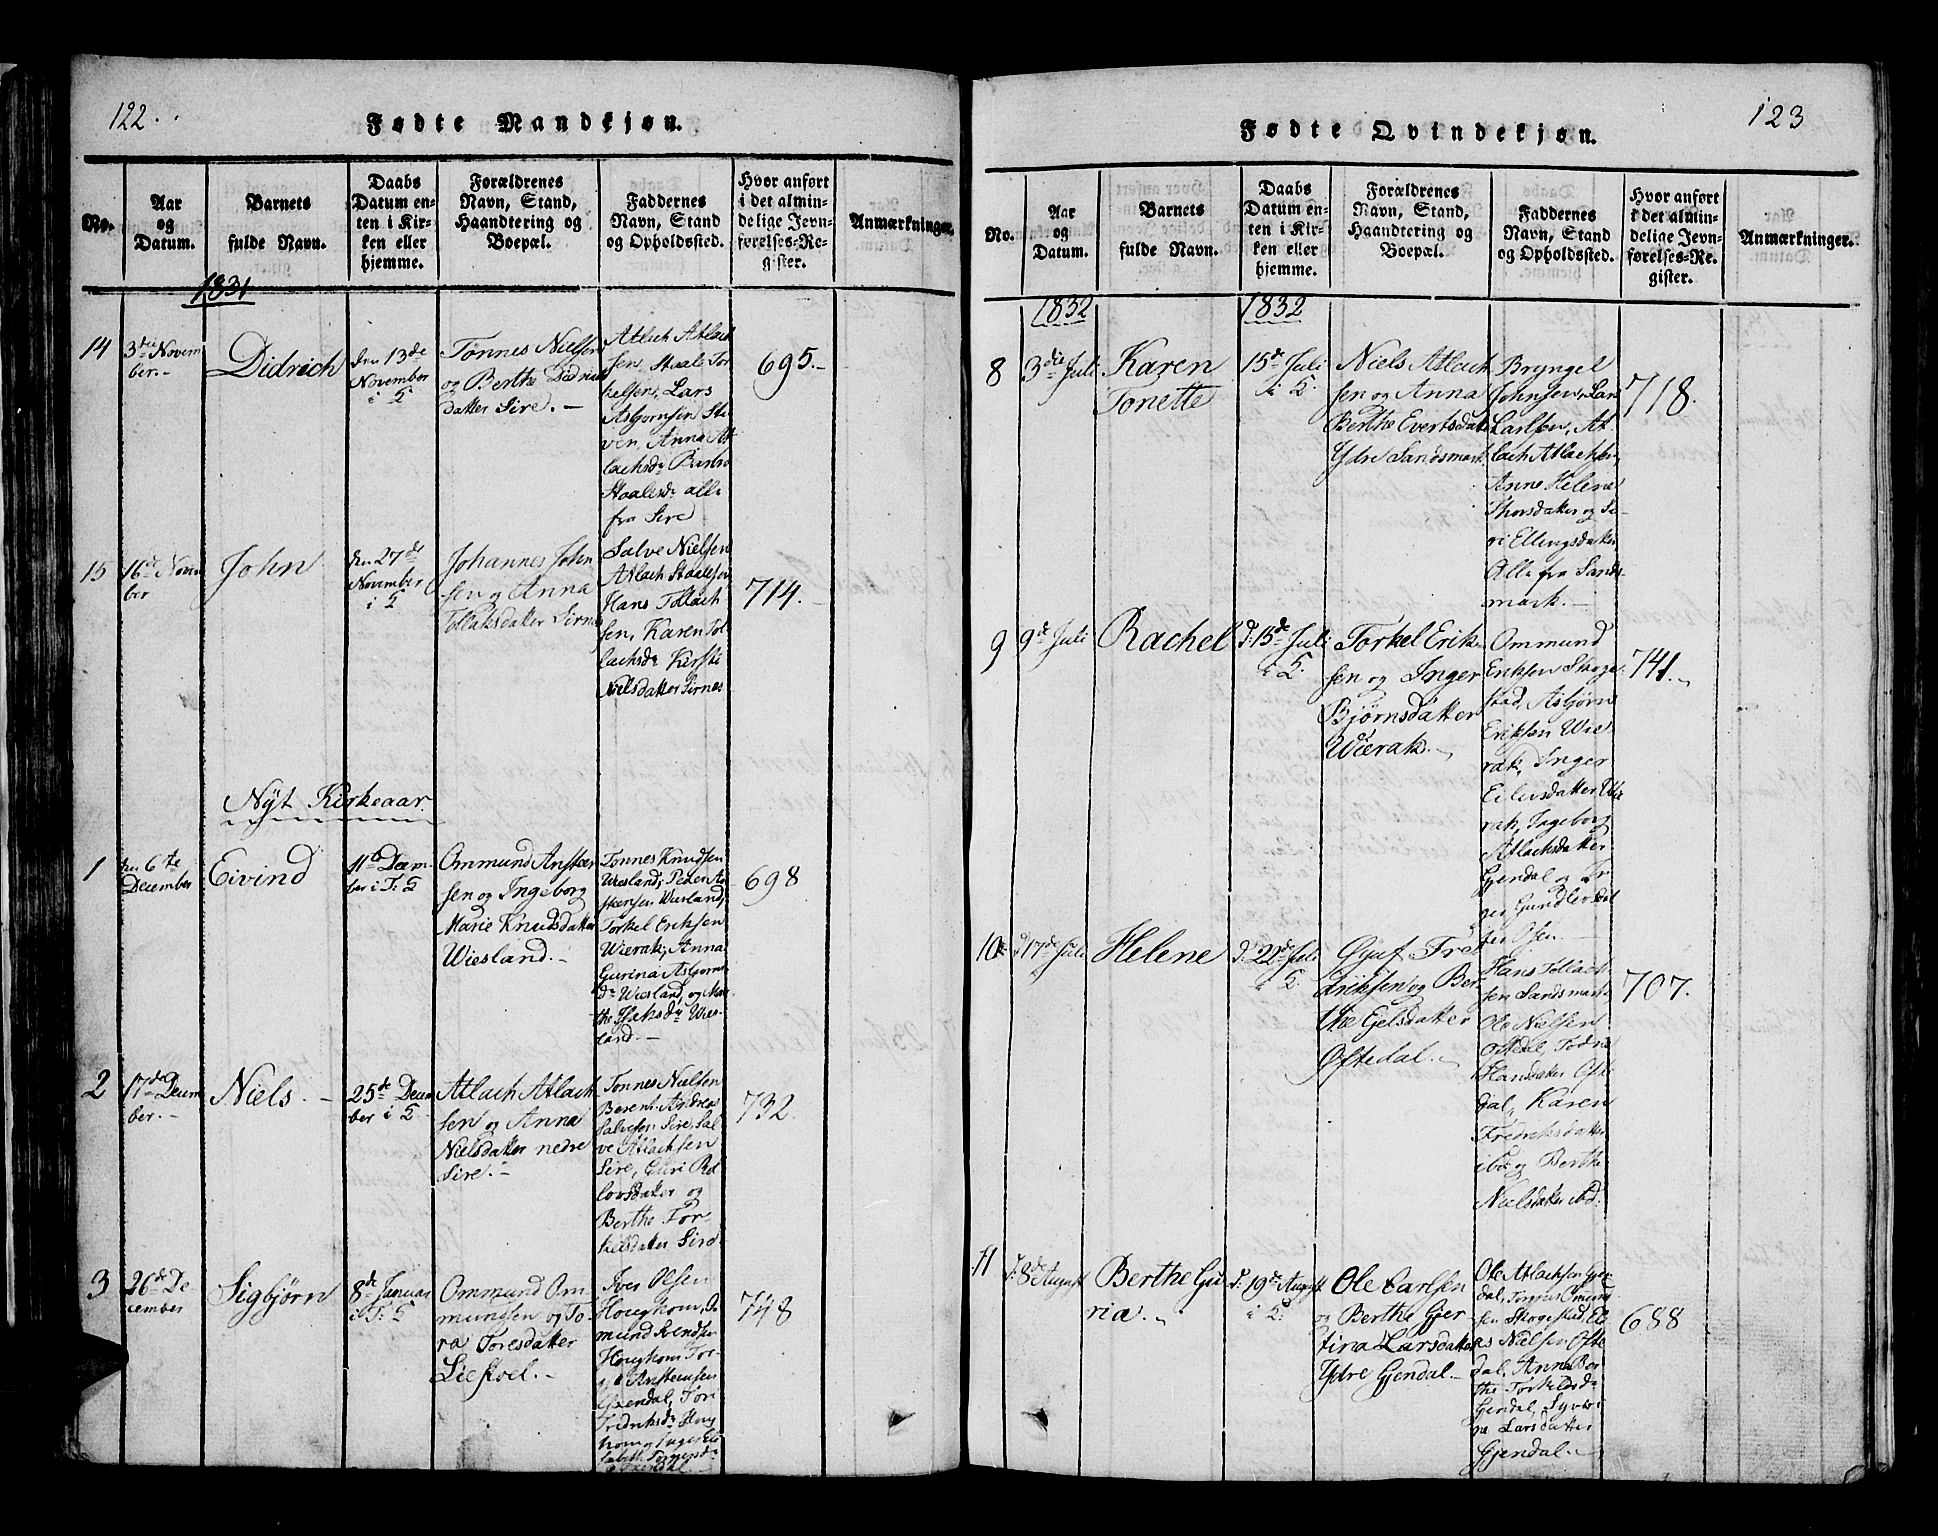 122.
Fødte Mandkjøn.
No.
Aar
og
Datum.
Barnets
fulde Navn.
Daabs
Datum en-
ten i Kir-
ken eller
hjemme.
Forældrenes
Navn, Stand,
Haandtering og
Boepæl.
Faddernes
Navn, Stand
og Opholdssted.
Hvor anført
i det almin-
delige Jevn-
førelses-Re-
gister.
Anmærkninger.
1831
14
3die Novem
ber.-
Didrich
den 13de
November
i S
Tønnes Nielsen
og Berthe Didriks
datter Sire. -
Atlach Atlach
sen, Staale Tor
kelsen, Lars
Asbjørnsen Sti
ven, Anna At
lachsdr Berthe
Staalesdr alle
fra Sire
695.-
15
16de Novem
ber
John
den 27de
November
i S
Johannes John
sen og Anna
Tollaksdatter Sirnes
Salve Nielsen
Atlach Staalesen
Hans Tollach
sen, Karen Tol
lachsdr Kirsti
Nielsdatter Sirnes
714.-
Nyt Kirkeaar
1
den 6te
December
Eivind
11te Decem-
ber i T: S
Ommund Ansteen
sen og Ingeborg
Marie Knudsdatter
Wiesland.-
Tønnes Knudsen
Wiesland, Peder An
steensen Wiesland,
Torkel Eriksen
Wierak, Anna
Gurina Asbjørns
dr Wiesland, og Mar
the Isaksdr Wies-
land.-
698
2
17de Decem
ber.-
Niels.-
25de Decem
ber i S
Atlach Atlach
sen og Anna
Nielsdatter nedre
Sire.-
Tønnes Nielsen
Berent Andreas
Salvesen Sire, Sal
ve Atlachsen
Sire, Guri Ro
lovsdatter og
Berthe Tor-
kelsdatter Sire.
732.
3
26de De
cember
Sigbjørn
8de Januar
i T: S
Ommund Om
mundsen og To
ra Toresdatter
Liestoel.-
Iver Olsen
Houghom, O
mund Svendsen
Houghom Tor-
Ansteensen
Gyendal, Tori
Fredriksdr Houg
hom og Inger Eli
sabeth Tønnesdr
Gyendal
748
123
Fødte Qvindekjøn.
No.
Aar
og
Datum.
Barnets
fulde Navn.
Daabs
Datum en-
ten i Kir-
ken eller
hjemme.
Forældrenes
Navn, Stand,
Haandtering og
Boepæl.
Faddernes
Navn, Stand
og Opholdssted.
Hvor anført
i det almin-
delige Jevn-
førelses-Re-
gister.
Anmærkninger.
1832
1832
8
3die Juli
Karen
Tonette
15de Juli
i S.
Niels Atlach
sen og Anna
Berthe Evertsdatter
Ydre Sandsmark.
Bryngel
Johnsen, Lars
Carlsen, At
lach Atlachsen,
Anne Helene
Thorsdatter og Si-
ri Ellingsdatter
Alle fra Sands-
mark.-
718.
9
9de Juli
Rachel
d: 15de Juli
i S.
Torkel Erik
sen og Inger
Bjørnsdatter
Wierak.-
Ommund
Eriksen Skoge
stad, Asbjørn
Eriksen Wie
rak, Inger
Eilersdatter Wie
rak, Ingeborg
Atlachsdatter
Gjendal og In
ger Gundlersdat
ter Osen.-
741.-
10
d 17de Juli
Helene
d: 22de Juli
i S.
Gjut Fre
driksen og Ber
the Egelsdatter
Oftedal.-
Hans Tollach
sen Sandsmark
Ole Nielsen
Oftedal, Todne
Hansdatter Ofte
dal, Karen
Fredriksdatter
ibd og Berthe
Nielsdatter ibd.
707.
11
d: 8de August
Berthe Gu
ria.-
d. 19de August
i S:
Ole Carlsen
og Berthe Gjer
tina Larsdatter
Ydre Gjendal.-
Ole Atlachsen Gjen
dal, Tønnes Omund
sen Skogestad, Eli
as Nielsen Ofte
dal, Anna Ber
the Torkelsdr
Gjendal, Syveri
ne Larsdatter
Gjendal.-
688